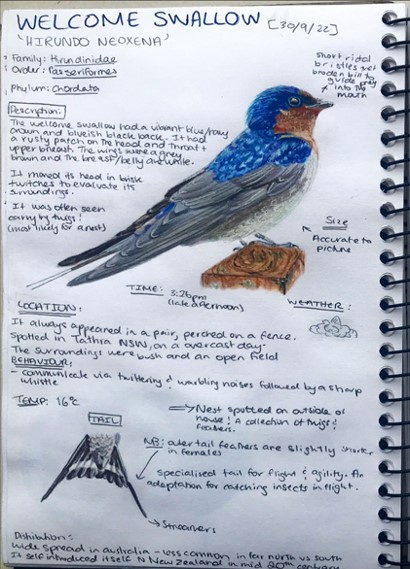 WELCOME SWALLOW [30/9/22]
'HIRUNDO NEOXENA'
Family: Hirundinidae
Order: Passeriformes
Phylum: Chordata
short rictal
bristles act
broaden bill to
guide prey
into the
mouth
Description:
The welcome swallow had a vibrant blue/navy
crown and blueish black back. It had
a rusty patch on the head and throat +
upper breast. The wings were a grey
brown and the breast/belly are white.
It moved its head in brisk
twitches to evaluate its
surroundings.
It was often seen
carrying twigs!
(most likely for a nest)
Size
Accurate to
picture
TIME: 3:26pm
(late afternoon)
WEATHER:
LOCATION:
It always appeared in a pair, perched on a fence.
Spotted in Tathra NSW, on a overcast day.
The surroundings were bush and an open field
BEHAVIOUR:
- communicate via twittering & warbling noises followed by a sharp
whistle
TEMP: 16°C
⇒ Nest spotted on outside of
house! A collection of twigs &
feathers.
TAIL
NB: outer tail feathers are slightly shorter
in females
Specialised tail for flight & agility. An
adaptation for catching insects in flight.
→ Streamers
Distribution:
Wide spread in australia - less common in far north us south
It self introduced itself to New Zealand in mid 20th century